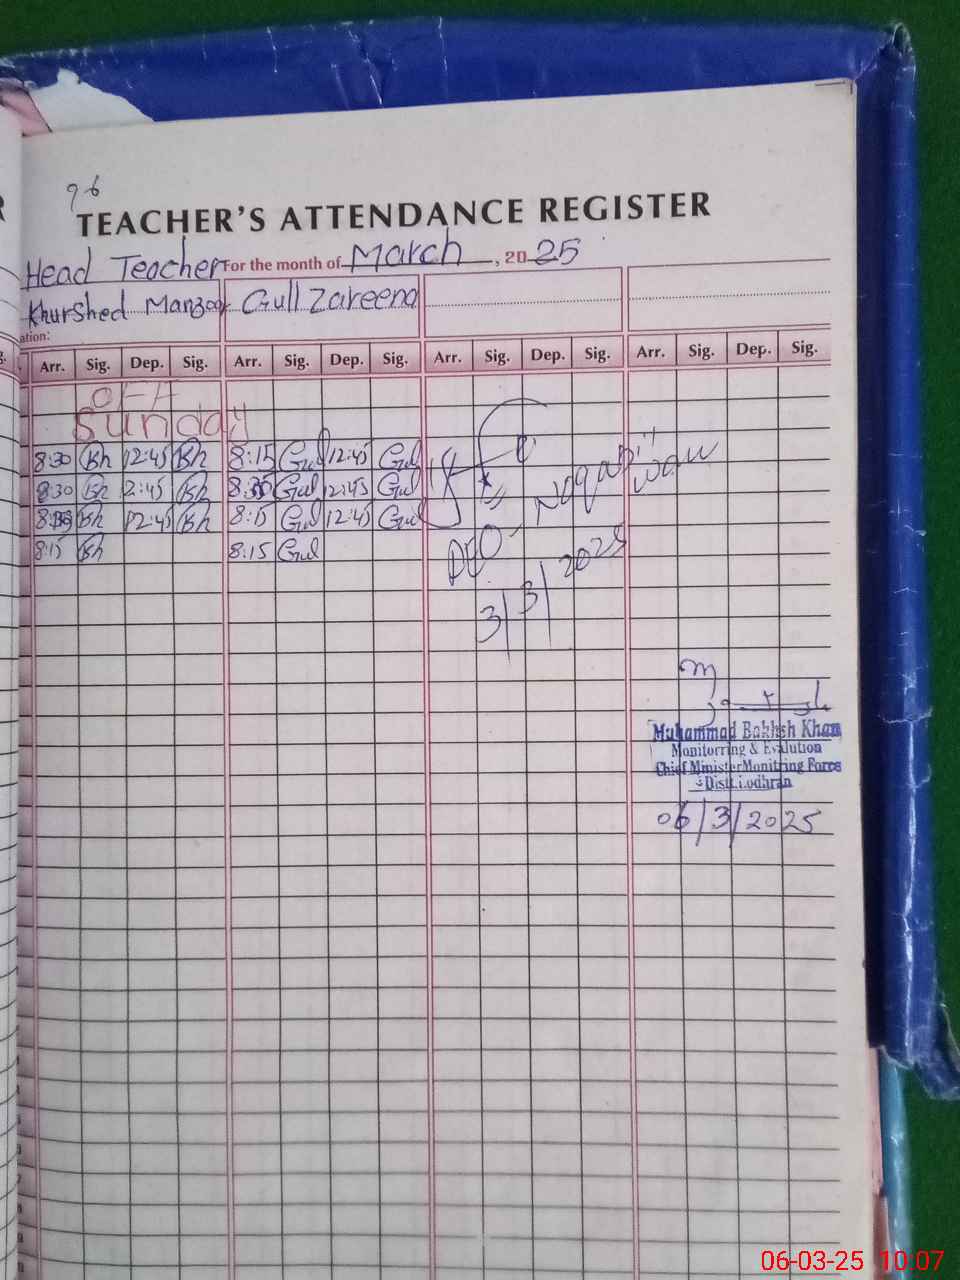 96
TEACHER'S ATTENDANCE REGISTER
Head Teacher For the month of March, 2025
Khurshed Manzoor Gull Zareena
ation:
Arr. Sig. Dep. Sig. Arr. Sig. Dep. Sig. Arr. Sig. Dep. Sig. Arr. Sig. Dep. Sig.
OFF
Sunday
8:30 Kh 12:45 Kh 8:15 Gul 12:45 Gul
8:30 Kh 2:45 Kh 8:30 Gul 12:45 Gul
Kh 12:45 Kh 8:15 Gul 12:45 Gul
8:15 Kh 8:15 Gul
3/3/2025
Muhammad Bakhsh Khan
Monitorring & Evalution
Chief Minister Monitring Force
Distt Lodhran
06/3/2025
06-03-25 10:07